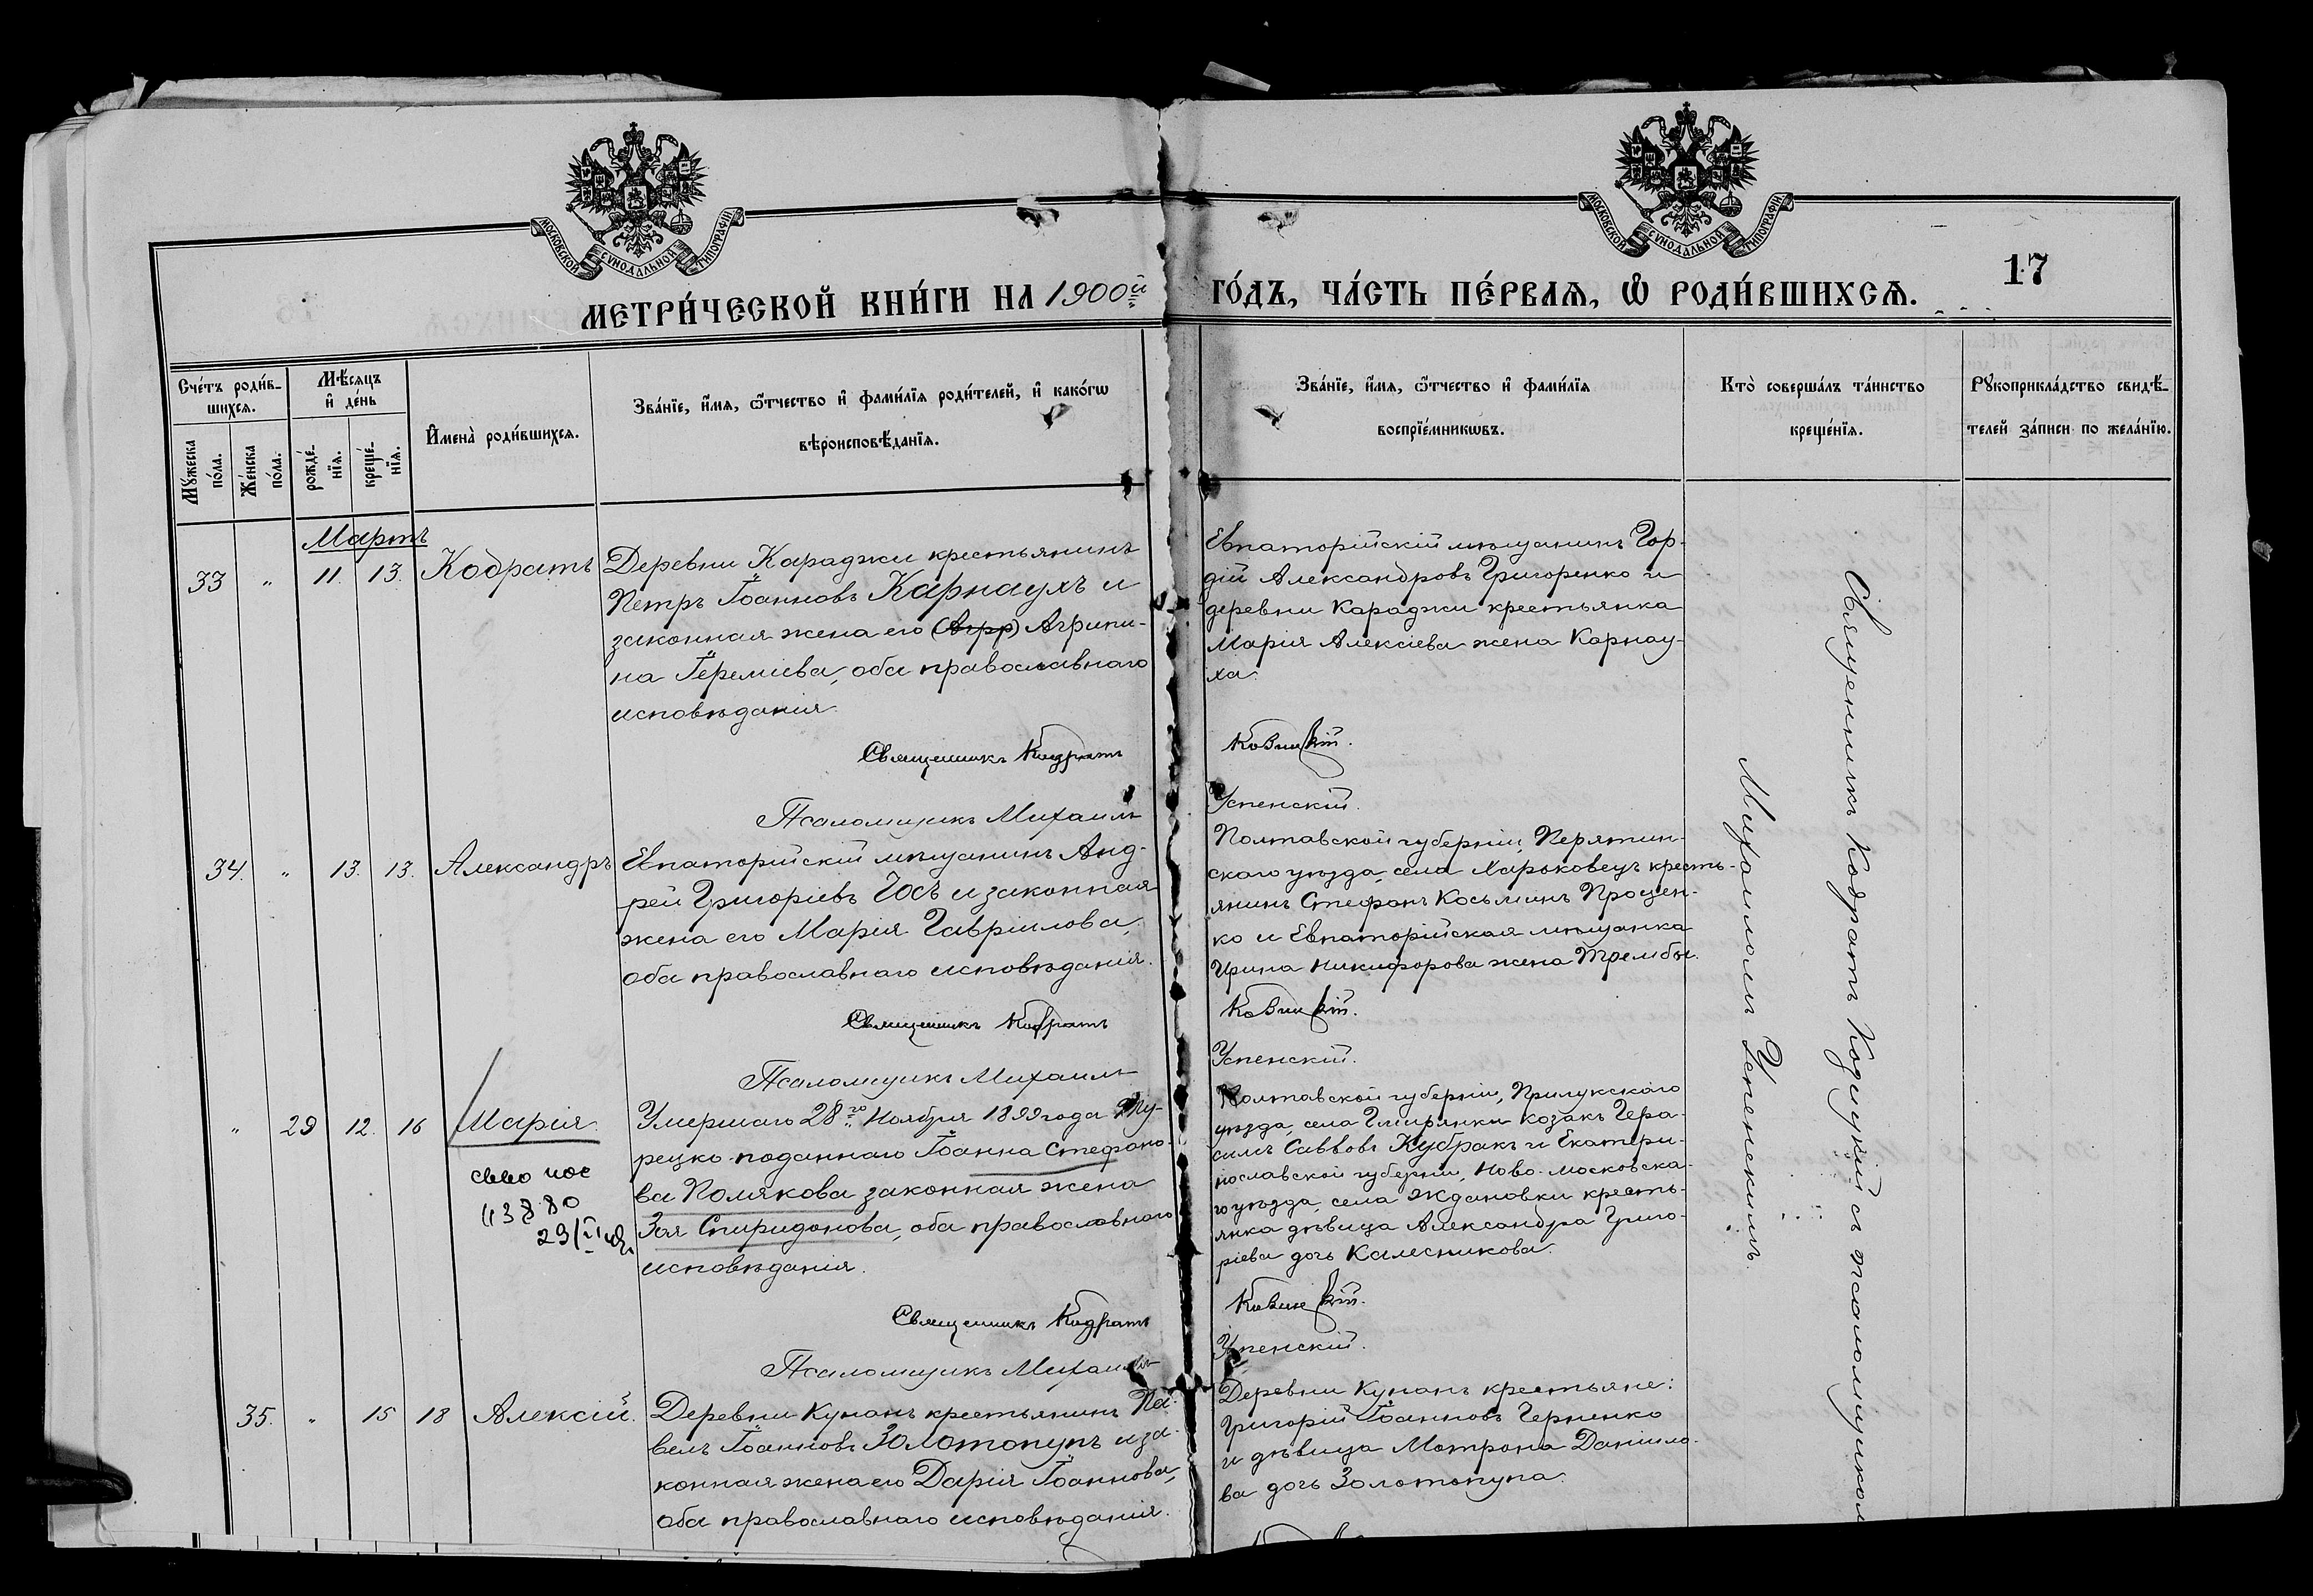 МОСКОВСКОЙ СѴНОДАЛЬНОЙ ТИПОГРАФІИ
МОСКОВСКОЙ СѴНОДАЛЬНОЙ ТИПОГРАФІИ
МЕТРИ́ЧЕСКОЙ КНИ́ГИ НА 1900й ГО́ДЪ, ЧА́СТЬ ПЕ́РВАѦ, Ѡ҆ РОДИ́ВШИХСѦ.
17
Сче́тъ роди́в-
шихсѧ.
Мꙋ́жеска
по́ла.
Же́нска
по́ла.
Мѣ́сѧцъ
и҆ де́нь
рожде́-
нїѧ.
креще́-
нїѧ.
И҆мена̀ роди́вшихсѧ.
Зва́нїе, и҆́мѧ, ѻ҆́тчество и҆ фами́лїѧ роди́телей, и҆ како́гѡ
вѣроисповѣ́данїѧ.
Зва́нїе, и҆́мѧ, ѻ҆́тчество и҆ фами́лїѧ
воспрїе́мникѡвъ.
Кто̀ соверша́лъ та́инство
креще́нїѧ.
Рꙋкоприкла́дство свидѣ́-
телей за́писи по жела́нїю.
Мартъ
33 " 11. 13. Кодратъ
Деревни Караджи крестьянинъ
Петръ Іоанновъ Карнаухъ и
законная жена его (Агрр) Агрипи-
на Іереміева, оба православнаго
исповѣданія.
Священникъ Кодратъ
Псаломщикъ Михаилъ
Евпаторійскій мѣщанинъ Гор-
дій Александровъ Григоренко и
деревни Караджи крестьянка
Марія Алексіева жена Карнау-
ха.
Успенскій.
34. " 13. 13. Александръ
Евпаторійскій мѣщанинъ Анд-
рей Григоріевъ Госъ и законная
жена его Марія Гавріилова,
оба православнаго исповѣданія.
Священникъ Кодратъ
Псаломщикъ Михаилъ
Полтавской губерніи, Перятин-
скаго уѣзда, села Харьковецъ кресть-
янинъ Стефанъ Косьминъ Процен-
ко и Евпаторійская мѣщанка
Ирина Никифорова жена Трембы.
Успенскій.
" 29 12. 16 Марія.
43880
Умершаго 28го Ноября 1899 года Ту-
рецко-поданнаго Іоанна Стефано-
ва Полякова законная жена
Зоя Спиридонова, оба православнаго
исповѣданія.
Священникъ Кодратъ
Псаломщикъ Михаилъ
Полтавской губерніи, Прилукскаго
уѣзда, села Гмирянки козакъ Гера-
симъ Саввовъ Кубракъ и Екатери-
нославской губерніи, Ново-московска-
го уѣзда, села Ждановки кресть-
янка дѣвица Александра Григо-
ріева дочь Калесникова.
Успенскій.
35. " 15 18 Алексій.
Деревни Кунанъ крестьянинъ Па-
велъ Іоанновъ Золотопупъ и за-
конная жена его Дарія Іоаннова,
оба православнаго исповѣданія.
Деревни Кунанъ крестьяне:
Григорій Іоанновъ Черненко
и дѣвица Матрона Даніило-
ва дочь Золотопупа.
Священникъ Кодратъ с псаломщикомъ
Михаиломъ Успенскимъ.